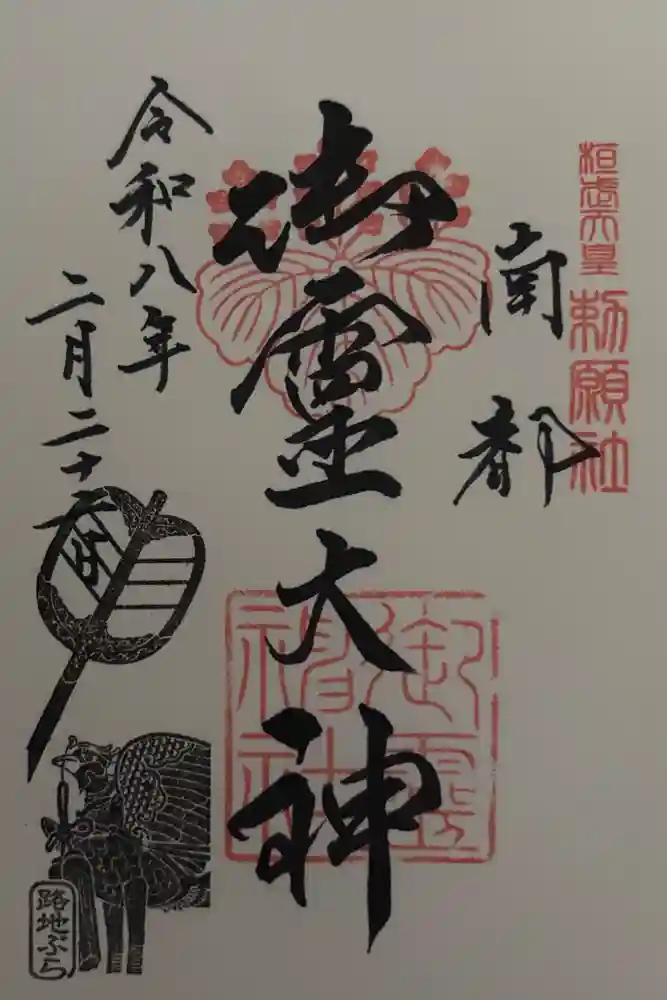 桓武天皇
勅願社
南都
御霊大神
御霊
神社
令和八年
二月二十
路地ぶら